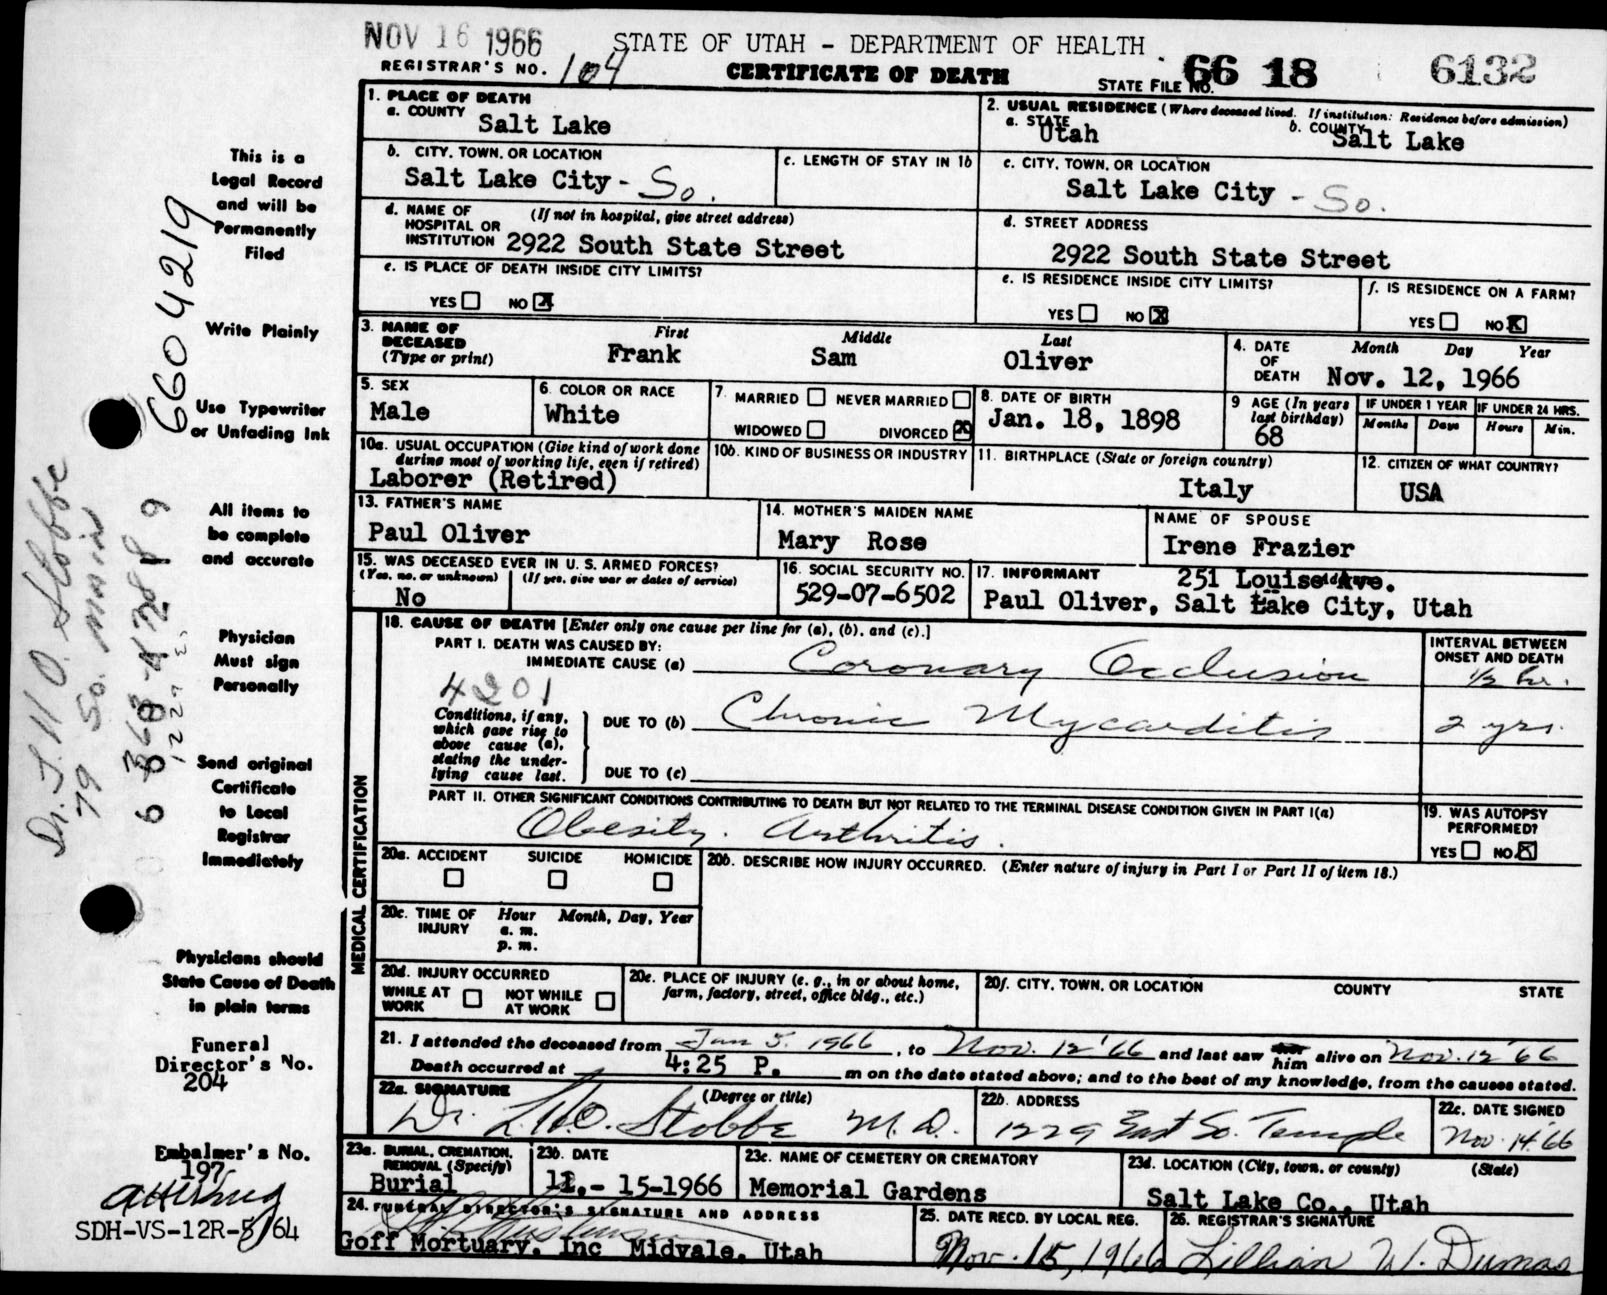 NOV 16 1966
STATE OF UTAH - DEPARTMENT OF HEALTH
REGISTRAR'S NO. 104
CERTIFICATE OF DEATH
STATE FILE NO. 66 18 6132
1. PLACE OF DEATH
a. COUNTY Salt Lake
2. USUAL RESIDENCE (Where deceased lived. If institution: Residence before admission)
a. STATE Utah
b. COUNTY Salt Lake
b. CITY, TOWN, OR LOCATION
Salt Lake City - So.
c. LENGTH OF STAY IN 1b
c. CITY, TOWN, OR LOCATION
Salt Lake City - So.
d. NAME OF HOSPITAL OR INSTITUTION (If not in hospital, give street address)
2922 South State Street
d. STREET ADDRESS
2922 South State Street
e. IS PLACE OF DEATH INSIDE CITY LIMITS?
YES NO X
e. IS RESIDENCE INSIDE CITY LIMITS?
YES NO X
f. IS RESIDENCE ON A FARM?
YES NO X
3. NAME OF DECEASED (Type or print)
First Middle Last
Frank Sam Oliver
4. DATE OF DEATH Month Day Year
Nov. 12, 1966
5. SEX
Male
6. COLOR OR RACE
White
7. MARRIED NEVER MARRIED
WIDOWED DIVORCED
8. DATE OF BIRTH
Jan. 18, 1898
9 AGE (In years last birthday)
68
IF UNDER 1 YEAR
Months Days
IF UNDER 24 HRS.
Hours Min.
10a. USUAL OCCUPATION (Give kind of work done during most of working life, even if retired)
Laborer (Retired)
10b. KIND OF BUSINESS OR INDUSTRY
11. BIRTHPLACE (State or foreign country)
Italy
12. CITIZEN OF WHAT COUNTRY?
USA
13. FATHER'S NAME
Paul Oliver
14. MOTHER'S MAIDEN NAME
Mary Rose
NAME OF SPOUSE
Irene Frazier
15. WAS DECEASED EVER IN U. S. ARMED FORCES?
(Yes, no, or unknown) (If yes, give war or dates of service)
No
16. SOCIAL SECURITY NO.
529-07-6502
17. INFORMANT 251 Louise Ave.
Paul Oliver, Salt Lake City, Utah
MEDICAL CERTIFICATION
18. CAUSE OF DEATH [Enter only one cause per line for (a), (b), and (c).]
PART I. DEATH WAS CAUSED BY:
IMMEDIATE CAUSE (a) Coronary Occlusion
INTERVAL BETWEEN ONSET AND DEATH
1/2 hr.
4201
Conditions, if any, which gave rise to above cause (a), stating the underlying cause last.
DUE TO (b) Chronic Myocarditis 2 yrs.
DUE TO (c)
PART II. OTHER SIGNIFICANT CONDITIONS CONTRIBUTING TO DEATH BUT NOT RELATED TO THE TERMINAL DISEASE CONDITION GIVEN IN PART I(a)
Obesity. Arthritis.
19. WAS AUTOPSY PERFORMED?
YES NO X
20a. ACCIDENT SUICIDE HOMICIDE
20b. DESCRIBE HOW INJURY OCCURRED. (Enter nature of injury in Part I or Part II of item 18.)
20c. TIME OF INJURY Hour Month, Day, Year
a. m.
p. m.
20d. INJURY OCCURRED
WHILE AT WORK NOT WHILE AT WORK
20e. PLACE OF INJURY (e. g., in or about home, farm, factory, street, office bldg., etc.)
20f. CITY, TOWN, OR LOCATION COUNTY STATE
21. I attended the deceased from Jan 5. 1966, to Nov. 12 '66 and last saw her him alive on Nov. 12 '66
Death occurred at 4:25 P. m on the date stated above; and to the best of my knowledge, from the causes stated.
22a. SIGNATURE (Degree or title)
Dr. L.H.O. Stobbe M.D.
22b. ADDRESS
1229 East So. Temple
22c. DATE SIGNED
Nov. 14 '66
23a. BURIAL, CREMATION, REMOVAL (Specify)
Burial
23b. DATE
11.- 15-1966
23c. NAME OF CEMETERY OR CREMATORY
Memorial Gardens
23d. LOCATION (City, town, or county) (State)
Salt Lake Co., Utah
24. FUNERAL DIRECTOR'S SIGNATURE AND ADDRESS
Goff Mortuary, Inc Midvale, Utah
25. DATE RECD. BY LOCAL REG.
Nov. 15, 1966
26. REGISTRAR'S SIGNATURE
Lillian W. Dumas
This is a
Legal Record
and will be
Permanently
Filed
Write Plainly
Use Typewriter
or Unfading Ink
All items to
be complete
and accurate
Physician
Must sign
Personally
Send original
Certificate
to Local
Registrar
Immediately
Physicians should
State Cause of Death
in plain terms
Funeral
Director's No.
204
Embalmer's No.
197
SDH-VS-12R-5/64
6604219
Stobbe
79 So. Main